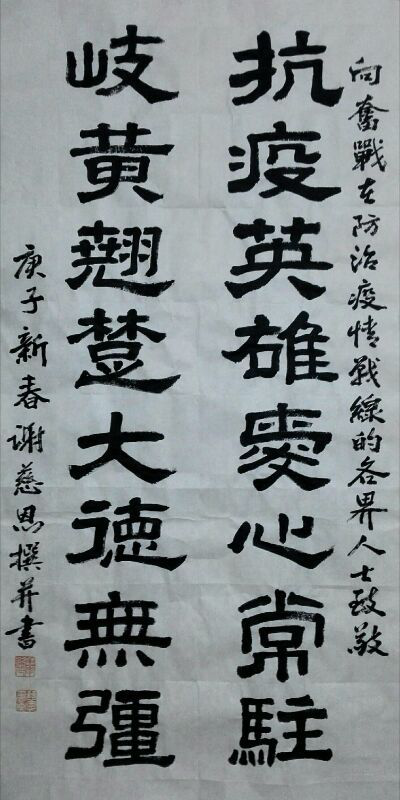 向奮戰在防治疫情戰線的各界人士致敬
抗疫英雄愛心常駐
岐黃翹楚大德無疆
庚子新春谢慈恩撰并書